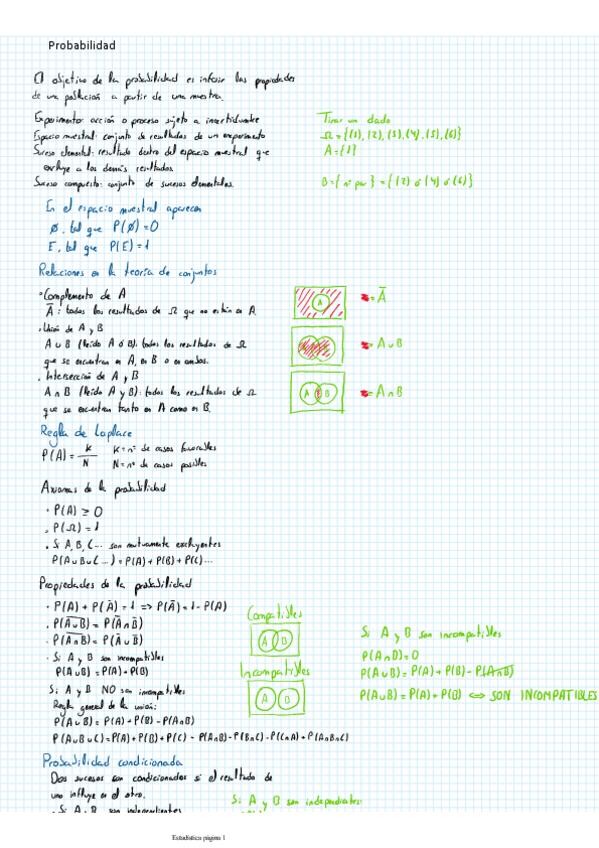 Probabilidad
El objetivo de la probabilidad es inferir las propiedades
de una población a partir de una muestra.
Experimento: acción o proceso sujeto a incertidumbre
Espacio muestral: conjunto de resultados de un experimento
Suceso elemental: resultado dentro del espacio muestral que
excluye a los demás resultados.
Suceso compuesto: conjunto de sucesos elementales.
Tirar un dado
Ω = {(1), (2), (3), (4), (5), (6)}
A = {1}
B = {nº par} = {(2) ó (4) ó (6)}
En el espacio muestral aparecen
Ø, tal que P(Ø) = 0
E, tal que P(E) = 1
Relaciones en la teoría de conjuntos
· Complemento de A
Ā : todos los resultados de Ω que no están en A.
A
= Ā
· Unión de A y B
A ∪ B (leído A ó B): todos los resultados de Ω
que se encuentran en A, en B o en ambos.
= A ∪ B
· Intersección de A y B
A ∩ B (leído A y B): todos los resultados de Ω
que se encuentran tanto en A como en B.
A B
= A ∩ B
Regla de Laplace
P(A) = K/N K = nº de casos favorables
N = nº de casos posibles
Axiomas de la probabilidad
· P(A) ≥ 0
· P(Ω) = 1
· Si A, B, C ... son mutuamente excluyentes
P(A∪B∪C ...) = P(A) + P(B) + P(C) ...
Propiedades de la probabilidad
· P(A) + P(Ā) = 1 => P(Ā) = 1 - P(A)
· P(A̅∪̅B̅) = P(Ā∩B̄)
· P(A̅∩̅B̅) = P(Ā∪B̄)
· Si A y B son incompatibles
P(A∪B) = P(A) + P(B)
Si A y B NO son incompatibles
Regla general de la unión:
P(A∪B) = P(A) + P(B) - P(A∩B)
P(A∪B∪C) = P(A) + P(B) + P(C) - P(A∩B) - P(B∩C) - P(C∩A) + P(A∩B∩C)
Compatibles
A B
Incompatibles
A B
Si A y B son incompatibles
P(A∩B) = 0
P(A∪B) = P(A) + P(B) - P(A∩B)
P(A∪B) = P(A) + P(B) <=> SON INCOMPATIBLES
Probabilidad condicionada
Dos sucesos son condicionados si el resultado de
uno influye en el otro.
· Si A y B son independientes
Si A y B son independientes:
Estadística página 1